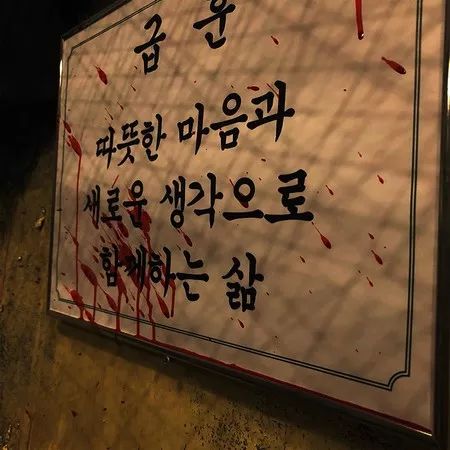 급운
따뜻한 마음과
새로운 생각으로
함께하는 삶